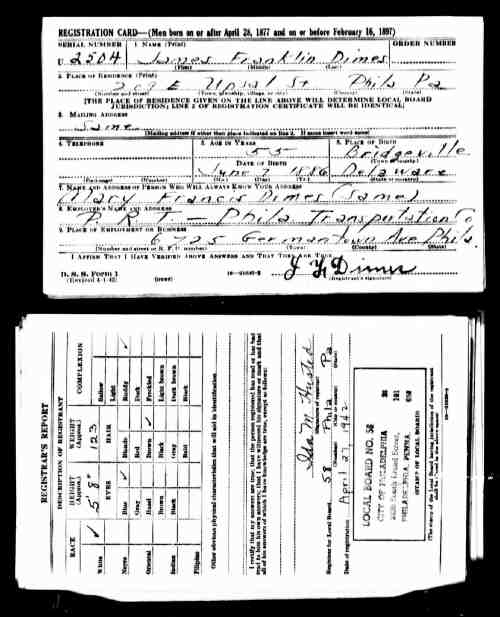 REGISTRATION CARD—(Men born on or after April 28, 1877 and on or before February 16, 1897)
SERIAL NUMBER 1. NAME (Print) ORDER NUMBER
U 2504 James Franklin Dimes
(First) (Middle) (Last)
2. PLACE OF RESIDENCE (Print)
E Upsal St Phila Pa
(Number and street) (Town, township, village, or city) (County) (State)
[THE PLACE OF RESIDENCE GIVEN ON THE LINE ABOVE WILL DETERMINE LOCAL BOARD
JURISDICTION; LINE 2 OF REGISTRATION CERTIFICATE WILL BE IDENTICAL]
3. MAILING ADDRESS
Same
[Mailing address if other than place indicated on line 2. If same insert word same]
4. TELEPHONE 5. AGE IN YEARS 6. PLACE OF BIRTH
55 Bridgeville
DATE OF BIRTH (Town or county)
June 7 1886 Delaware
(Exchange) (Number) (Mo.) (Day) (Yr.) (State or country)
7. NAME AND ADDRESS OF PERSON WHO WILL ALWAYS KNOW YOUR ADDRESS
Mary Francis Dimes (same)
8. EMPLOYER'S NAME AND ADDRESS
P. R. T. — Phila Transportation Co
9. PLACE OF EMPLOYMENT OR BUSINESS
6725 Germantown Ave Phila.
(Number and street or R. F. D. number) (Town) (County) (State)
I AFFIRM THAT I HAVE VERIFIED ABOVE ANSWERS AND THAT THEY ARE TRUE.
D. S. S. Form 1
(Revised 4-1-42) (over)
J. F. Dimes
(Registrant's signature)
REGISTRAR'S REPORT
DESCRIPTION OF REGISTRANT
RACE HEIGHT (Approx.) WEIGHT (Approx.) COMPLEXION
White ✓ 5' 8" 123 Sallow
EYES HAIR
Negro Blue ✓ Blonde Ruddy ✓
Gray Red Dark
Oriental Hazel Brown ✓ Freckled
Brown Black Light brown
Indian Black Gray Dark brown
Bald Black
Filipino
Other obvious physical characteristics that will aid in identification
I certify that my answers are true; that the person registered has read or has had
read to him his own answers; that I have witnessed his signature or mark and that
all of his answers of which I have knowledge are true, except as follows:
Ida M. Husted
(Signature of registrar)
Registrar for Local Board 58 Phila Pa
(Number) (City or county) (State)
Date of registration April 27 1942
LOCAL BOARD NO. 58
CITY OF PHILADELPHIA
PHILADELPHIA, PENNA
(STAMP OF LOCAL BOARD)
(The stamp of the Local Board having jurisdiction of the registrant
shall be placed in the above space)